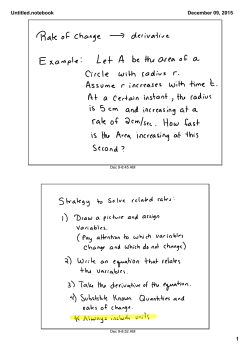 Untitled.notebook
December 09, 2015
Rate of change → derivative
Example: Let A be the area of a
Circle with radius r.
Assume r increases with time t.
At a certain instant, the radius
is 5 cm and increasing at a
rate of 2 cm/sec. How fast
is the Area increasing at this
Second?
Dec 9-8:45 AM
Strategy to Solve related rates:
1) Draw a picture and assign
variables.
(Pay attention to which variables
change and which do not change)
2) Write an equation that relates
the variables.
3) Take the derivative of the equation.
4) Substitute Known Quantities and
rates of change.
* Always include units
Dec 9-8:52 AM
1